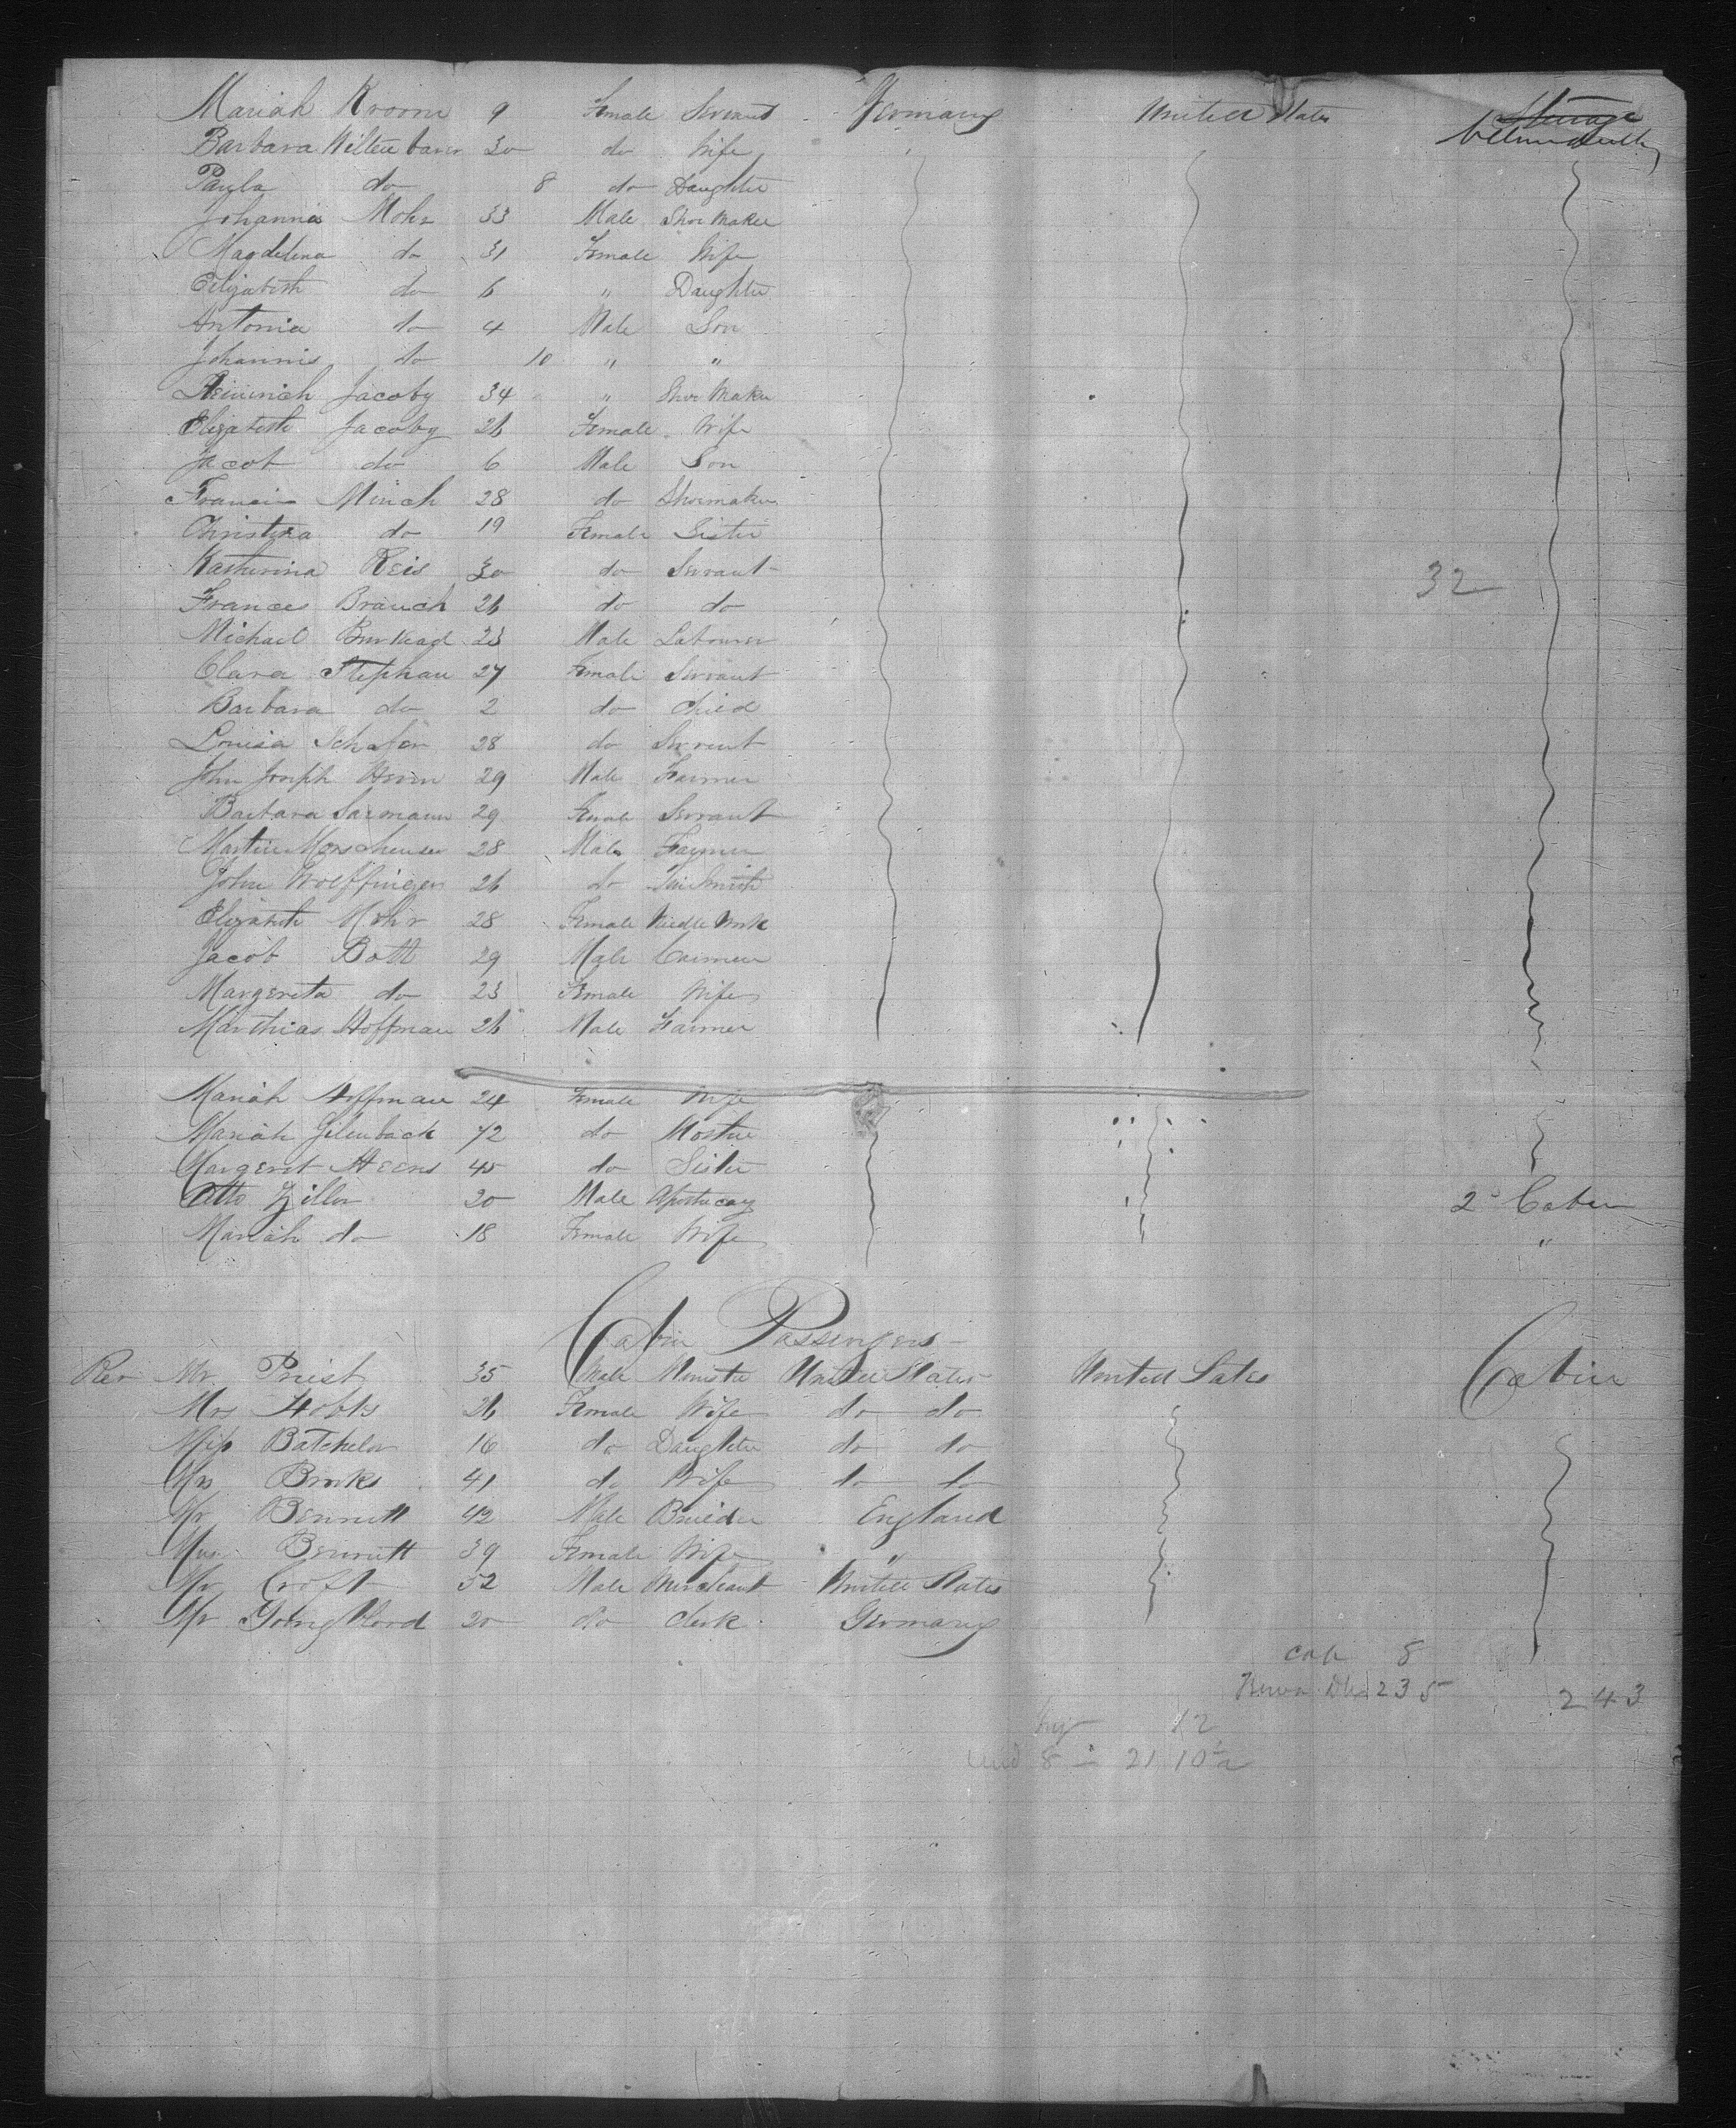 Mariah Kroom 9 Female Servant Germany United States Steerage
Between decks
Barbara Wiltenbarer 30 do Wife
Paula do 8 do Daughter
Johannia Mohr 33 Male Shoe Maker
Magdelina do 31 Female Wife
Elizabeth do 6 " Daughter
Antonia do 4 Male Son
Johannis do 10 " "
Heinrich Jacoby 34 " Shoe Maker
Elizabeth Jacoby 26 Female Wife
Jacob do 6 Male Son
Francis Minch 28 do Shoemaker
Christina do 19 Female Sister
Katherina Reis 30 do Servant 32
Frances Brauch 26 do do
Michael Burkead 23 Male Labourer
Clara Stephan 27 Female Servant
Barbara do 2 do Child
Louisa Schafer 28 do Servent
John Joseph 29 Male Farmer
Barbara Sarmann 29 Female Servant
Martin Morscheuser 28 Male Farmer
John Wolffinger 26 do Tin Smith
Elizabeth Mohr 28 Female Needle Work
Jacob Bott 29 Male
Margereta do 23 Female Wife
Matthias Hoffman 26 Male Farmer
Mariah Hoffman 24 Female Wife
Mariah Gilenback 72 do Mother
Margeret Heens 45 do Sister
Otto Ziller 20 Male Apothecary 2d Cabin
Mariah do 18 Female Wife "
Cabin Passengers
Rev Mr. Priest 35 Male Minister United States United Sates Cabin
Mrs Hobbs 26 Female Wife do do
Miss Batchelor 16 do Daughter do do
Mrs Brooks 41 do Wife do do
Mr Bennett 42 Male Builder England
Mrs Bennett 39 Female Wife "
Mr Croft 52 Male Merchant United States
Mr Youngblood 20 do Clerk Germany
cab 8
235 243
12
8 21 10